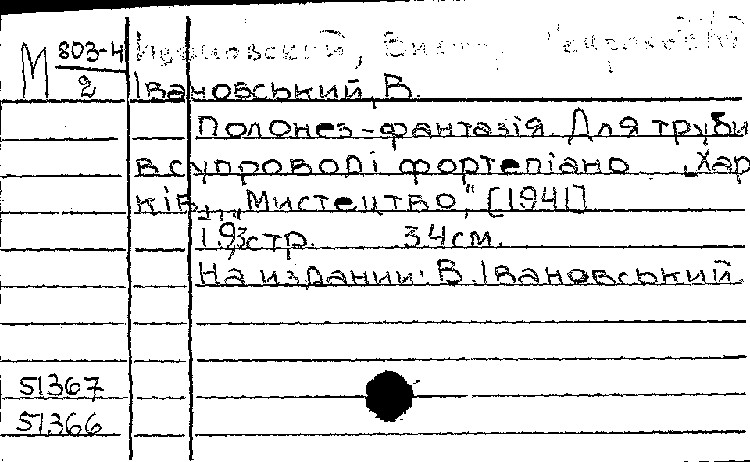 М 803-4
2
Ивановский, Виктор
Івановський, В.
Полонез-фантазія. Для труби
в супроводі фортепіано. Хар
ків, „Мистецтво," [1941]
стр. 34 см.
На издании: В. Івановський.
51367
51366